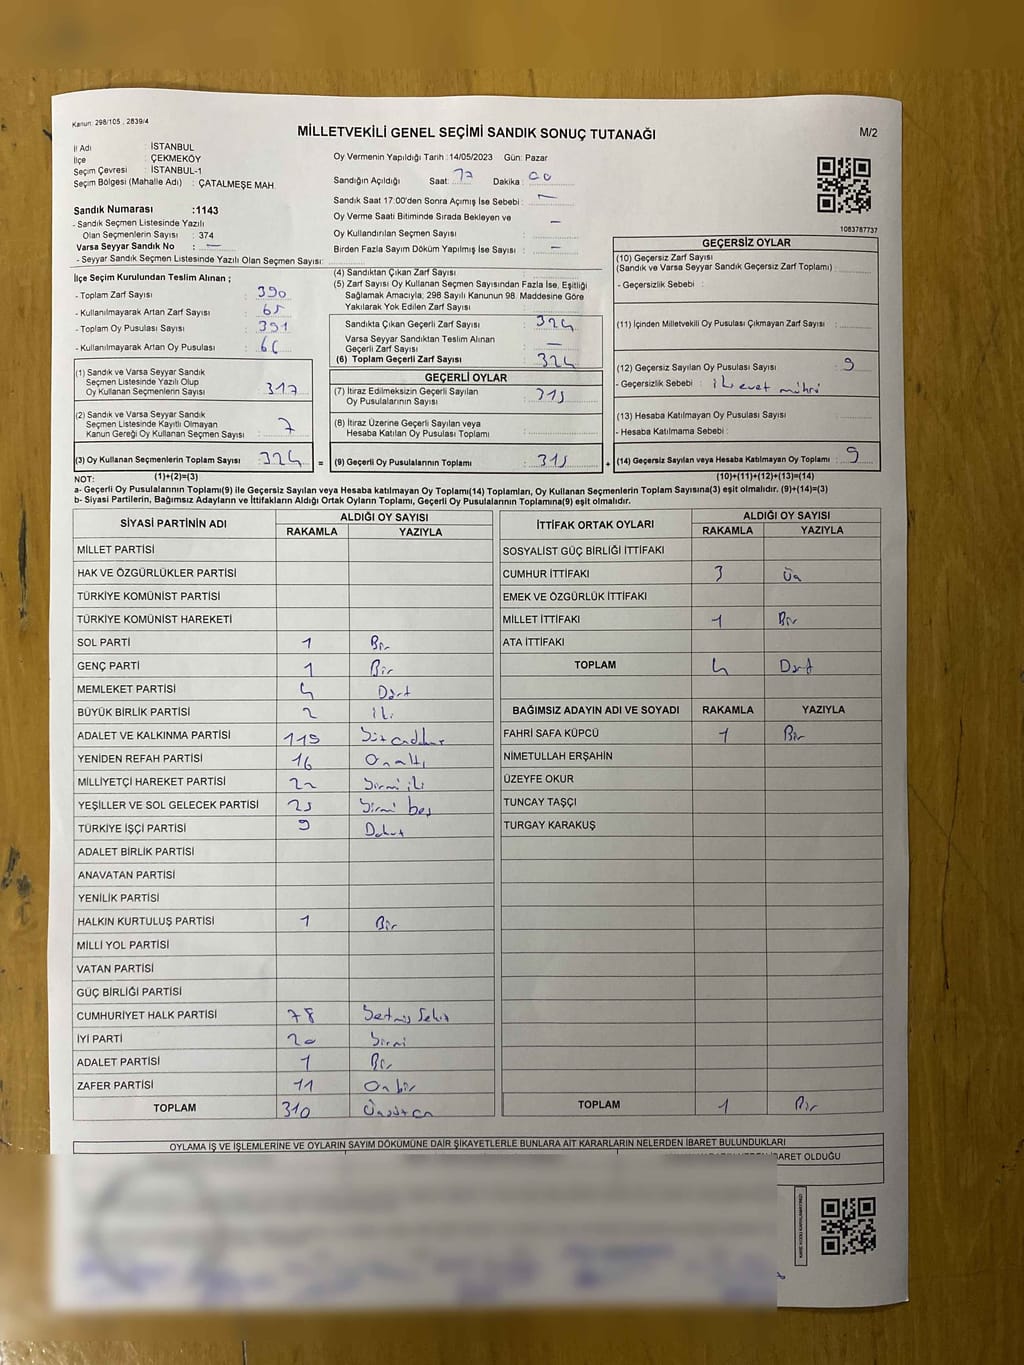 Kanun: 298/105 , 2839/4
MİLLETVEKİLİ GENEL SEÇİMİ SANDIK SONUÇ TUTANAĞI
M/2
İl Adı : İSTANBUL
İlçe : ÇEKMEKÖY
Seçim Çevresi : İSTANBUL-1
Seçim Bölgesi (Mahalle Adı) : ÇATALMEŞE MAH.
Oy Vermenin Yapıldığı Tarih : 14/05/2023 Gün: Pazar
Sandığın Açıldığı Saat: 17 Dakika: 00
Sandık Saat 17:00'den Sonra Açımış İse Sebebi : —
Oy Verme Saati Bitiminde Sırada Bekleyen ve
Oy Kullandırılan Seçmen Sayısı : —
Birden Fazla Sayım Döküm Yapılmış İse Sayısı : —
1083787737
Sandık Numarası :1143
- Sandık Seçmen Listesinde Yazılı
Olan Seçmenlerin Sayısı : 374
Varsa Seyyar Sandık No : —
- Seyyar Sandık Seçmen Listesinde Yazılı Olan Seçmen Sayısı:
İlçe Seçim Kurulundan Teslim Alınan ;
- Toplam Zarf Sayısı : 390
- Kullanılmayarak Artan Zarf Sayısı : 65
- Toplam Oy Pusulası Sayısı : 391
- Kullanılmayarak Artan Oy Pusulası : 66
(1) Sandık ve Varsa Seyyar Sandık
Seçmen Listesinde Yazılı Olup
Oy Kullanan Seçmenlerin Sayısı : 317
(2) Sandık ve Varsa Seyyar Sandık
Seçmen Listesinde Kayıtlı Olmayan
Kanun Gereği Oy Kullanan Seçmen Sayısı : 7
(3) Oy Kullanan Seçmenlerin Toplam Sayısı : 324
(1)+(2)=(3)
(4) Sandıktan Çıkan Zarf Sayısı :
(5) Zarf Sayısı Oy Kullanan Seçmen Sayısından Fazla İse, Eşitliği
Sağlamak Amacıyla, 298 Sayılı Kanunun 98. Maddesine Göre
Yakılarak Yok Edilen Zarf Sayısı :
Sandıkta Çıkan Geçerli Zarf Sayısı : 324
Varsa Seyyar Sandıktan Teslim Alınan
Geçerli Zarf Sayısı : —
(6) Toplam Geçerli Zarf Sayısı : 324
GEÇERLİ OYLAR
(7) İtiraz Edilmeksizin Geçerli Sayılan
Oy Pusulalarının Sayısı : 315
(8) İtiraz Üzerine Geçerli Sayılan veya
Hesaba Katılan Oy Pusulası Toplamı :
= (9) Geçerli Oy Pusulalarının Toplamı : 315
GEÇERSİZ OYLAR
(10) Geçersiz Zarf Sayısı
(Sandık ve Varsa Seyyar Sandık Geçersiz Zarf Toplamı) :
- Geçersizlik Sebebi :
(11) İçinden Milletvekili Oy Pusulası Çıkmayan Zarf Sayısı :
(12) Geçersiz Sayılan Oy Pusulası Sayısı : 9
- Geçersizlik Sebebi : iki evet mührü
(13) Hesaba Katılmayan Oy Pusulası Sayısı :
- Hesaba Katılmama Sebebi :
+ (14) Geçersiz Sayılan veya Hesaba Katılmayan Oy Toplamı : 9
(10)+(11)+(12)+(13)=(14)
NOT:
a- Geçerli Oy Pusulalarının Toplamı(9) ile Geçersiz Sayılan veya Hesaba katılmayan Oy Toplamı(14) Toplamları, Oy Kullanan Seçmenlerin Toplam Sayısına(3) eşit olmalıdır. (9)+(14)=(3)
b- Siyasi Partilerin, Bağımsız Adayların ve İttifakların Aldığı Ortak Oyların Toplamı, Geçerli Oy Pusulalarının Toplamına(9) eşit olmalıdır.
SİYASİ PARTİNİN ADI ALDIĞI OY SAYISI
RAKAMLA YAZIYLA
MİLLET PARTİSİ
HAK VE ÖZGÜRLÜKLER PARTİSİ
TÜRKİYE KOMÜNİST PARTİSİ
TÜRKİYE KOMÜNİST HAREKETİ
SOL PARTİ 1 Bir
GENÇ PARTİ 1 Bir
MEMLEKET PARTİSİ 4 Dört
BÜYÜK BİRLİK PARTİSİ 2 iki
ADALET VE KALKINMA PARTİSİ 119 Yüzondokuz
YENİDEN REFAH PARTİSİ 16 Onaltı
MİLLİYETÇİ HAREKET PARTİSİ 22 Yirmi iki
YEŞİLLER VE SOL GELECEK PARTİSİ 25 Yirmi beş
TÜRKİYE İŞÇİ PARTİSİ 9 Dokuz
ADALET BİRLİK PARTİSİ
ANAVATAN PARTİSİ
YENİLİK PARTİSİ
HALKIN KURTULUŞ PARTİSİ 1 Bir
MİLLİ YOL PARTİSİ
VATAN PARTİSİ
GÜÇ BİRLİĞİ PARTİSİ
CUMHURİYET HALK PARTİSİ 78 Yetmiş Sekiz
İYİ PARTİ 20 Yirmi
ADALET PARTİSİ 1 Bir
ZAFER PARTİSİ 11 Onbir
TOPLAM 310 Üçyüzon
İTTİFAK ORTAK OYLARI ALDIĞI OY SAYISI
RAKAMLA YAZIYLA
SOSYALİST GÜÇ BİRLİĞİ İTTİFAKI
CUMHUR İTTİFAKI 3 Üç
EMEK VE ÖZGÜRLÜK İTTİFAKI
MİLLET İTTİFAKI 1 Bir
ATA İTTİFAKI
TOPLAM 4 Dört
BAĞIMSIZ ADAYIN ADI VE SOYADI RAKAMLA YAZIYLA
FAHRİ SAFA KÜPCÜ 1 Bir
NİMETULLAH ERŞAHİN
ÜZEYFE OKUR
TUNCAY TAŞÇI
TURGAY KARAKUŞ
TOPLAM 1 Bir
OYLAMA İŞ VE İŞLEMLERİNE VE OYLARIN SAYIM DÖKÜMÜNE DAİR ŞİKAYETLERLE BUNLARA AİT KARARLARIN NELERDEN İBARET BULUNDUKLARI
İBARET OLDUĞU